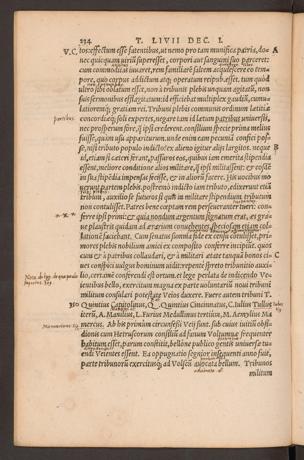 234 T. LIVII DEC. I.
V.C. tos: effectum esse fatentibus, ut nemo pro tam munifica patria, do= A
nec quicquam virium superesset, corpori aut sanguini suo parceret:
cum commoditas iuvaret, rem familiarem saltem acquiescere eo tem=
pore, quo corpus addictum atque operatum reipub. esset, tum quòd
ultro sibi oblatum esset, non à tribunis plebis unquam agitatum, non
suis sermonibus efflagitatum: id efficiebat multiplex gaudium, cumu=
latioremque gratiam rei. Tribuni plebis communis ordinum laetitiae
concordiaeque soli expertes, negare tam id laetum patribus universis,
nec prosperum fore, quàm ipsi crederent. consilium specie prima melius
fuisse, quàm usu appariturum. unde enim eam pecuniam confici pos=
se, nisi tributo populo indicto? ex alieno igitur aliis largitos. neque B
id, etiam si caeteri ferant, passuros eos, quibus iam emerita stipendia
essent, meliore conditione alios militare, quàm ipsi militassent: et eosdem
in sua stipendia impensas fecisse, et in aliorum facere. His vocibus mo=
verunt partem plebis. postremò indicto iam tributo, edixerunt etiam
tribuni, auxilio se futuros si quis in militare stipendium tributum
non contulisset. Patres bene coeptam rem perseverare tueri: confer=
re ipsi primi: et quia nondum argentum signatum erat, aes gra=
ve plaustris quidam ad aerarium convehentes, speciosam etiam col=
lationem faciebant. Cum senatus summa fide ex censu contulisset, pri=
mores plebis nobilium amici ex composito conferre incipiunt. quos
cum et à patribus collaudari, et à militari aetate tanquam bonos ci= C
ves conspici vulgus hominum vidit: repentè spreto tribunitio auxi=
lio, certamen conferendi est ortum. et lege perlata de indicendo Ve=
ientibus bello, exercitum magna ex parte voluntarium novi tribuni
militum consulari potestate Veios duxere. Fuere autem tribuni T.
350 Quintius Capitolinus, Q. Quintius Cincinnatus, C. Iulius Tullus
iterum, A. Manlius, L. Furius Medullinus tertium, M. Aemylius Ma
mercus. Ab his primum circumsessi Veii sunt. sub cuius initium obsi=
dionis cum Hetruscorum concilium ad fanum Voltumnae frequenter
habitum esset, parum constitit, bellóne publico gentis universae tu=
endi Veientes essent. Ea oppugnatio segnior insequenti anno fuit,
parte tribunorum exercitusque ad Volscum avocata bellum. Tribunos
militum